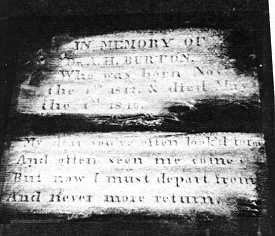 IN MEMORY OF
H. BURTON.
Who was born Nov
the 4th 1817. & died
the 4th 1840.
My dear you've often look'd for me
And often seen me come
But now I must depart from
And never more return.